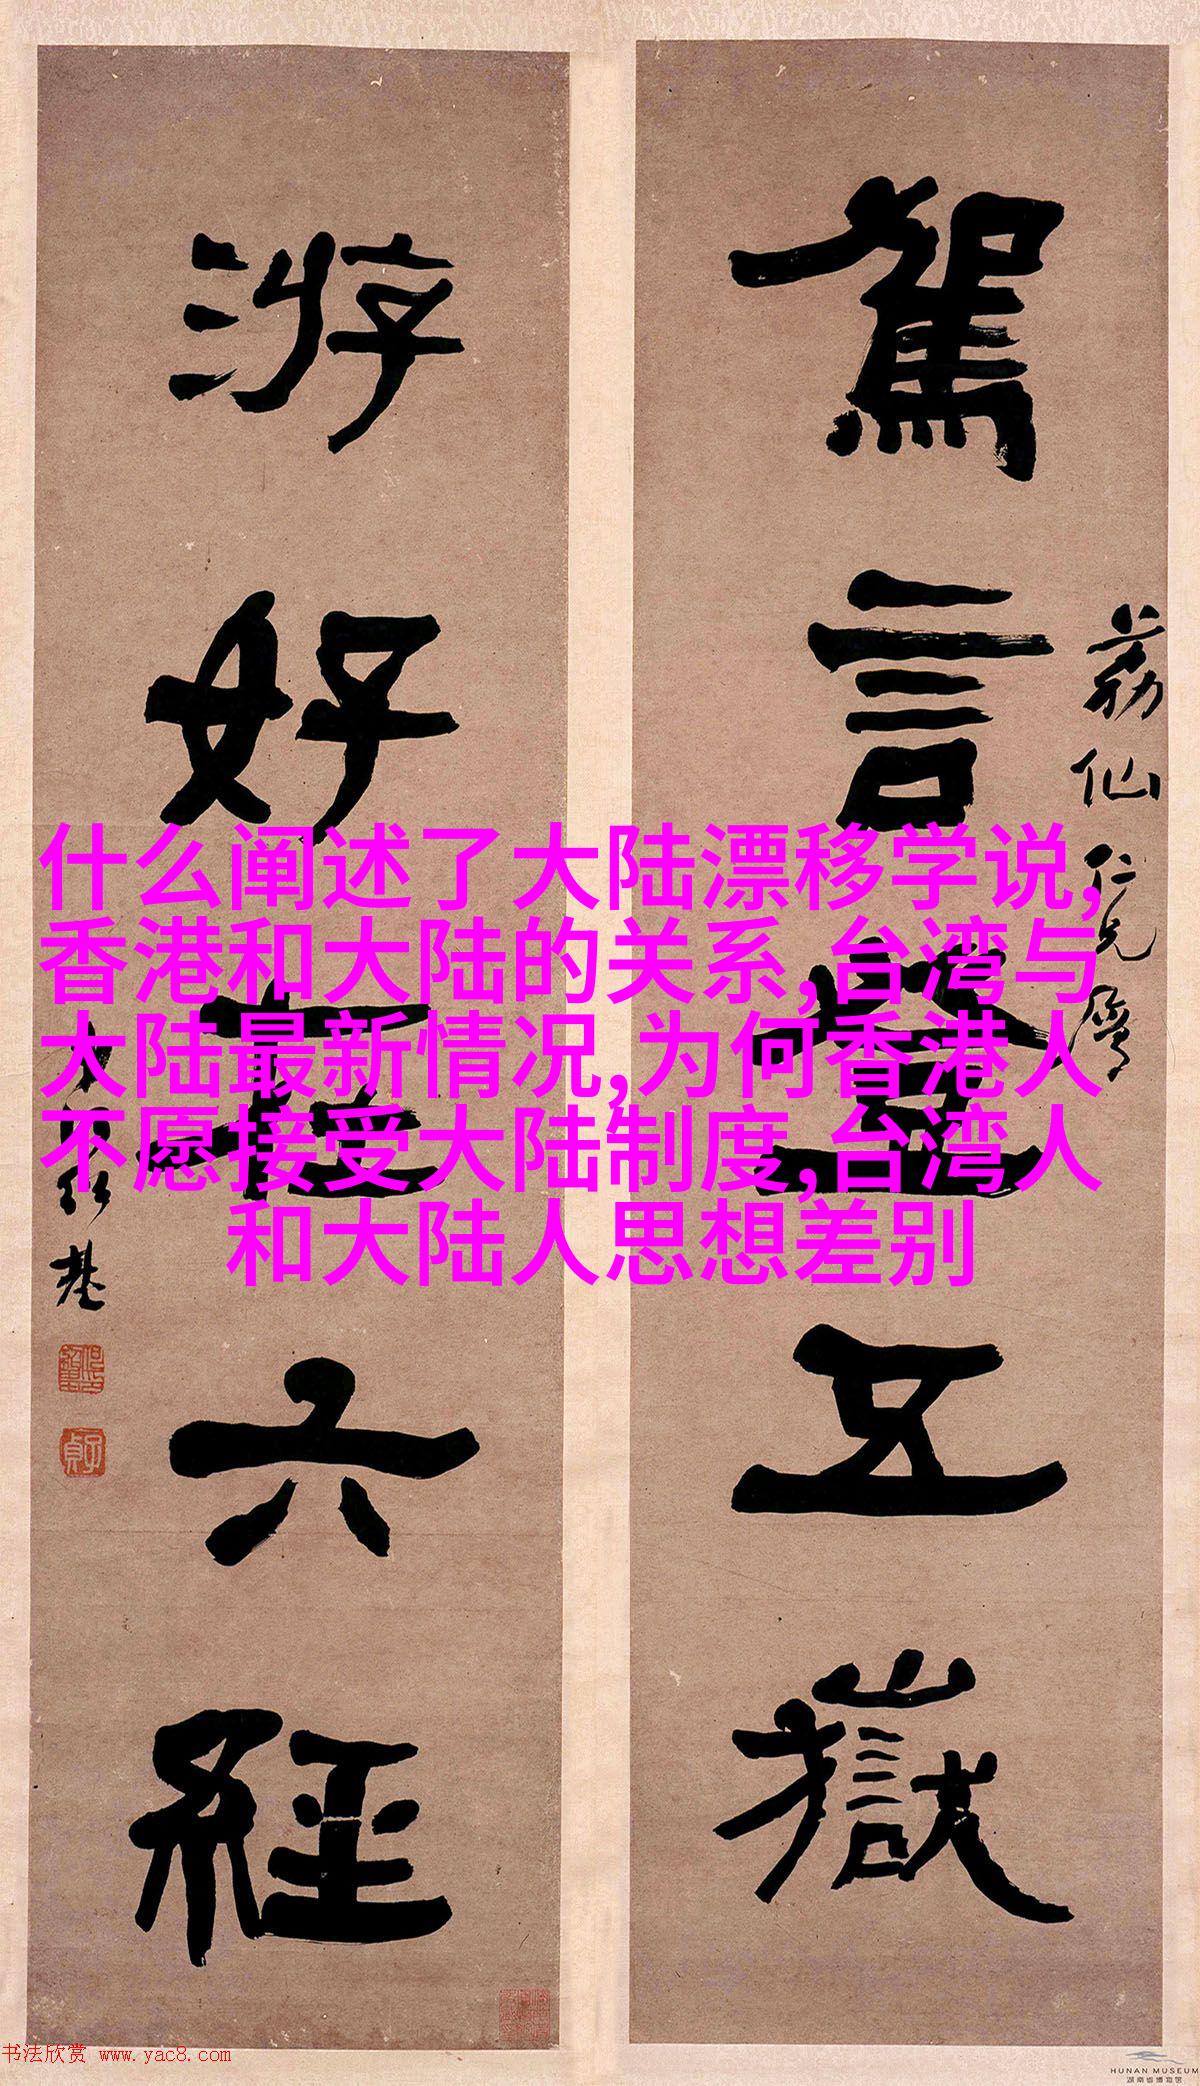 駕言登五嶽
荔仙仁兄屬
游好在六經
何紹基
什么阐述了大陆漂移学说,
香港和大陆的关系,台湾与
大陆最新情况,为何香港人
不愿接受大陆制度,台湾人
和大陆人思想差别
书法欣赏 www.yac8.com
HUNAN MUSEUM
湖南省博物馆